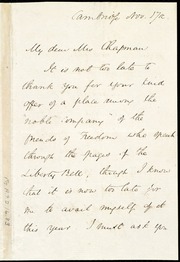 Cambridge Nov. 17th
My dear Mrs Chapman
It is not too late to
thank you for your kind
offer of a place among the
"noble company" of the
friends of Freedom who speak
through the pages of the
Liberty Bell, though I know
that it is now too late for
me to avail myself of it
this year I must ask you